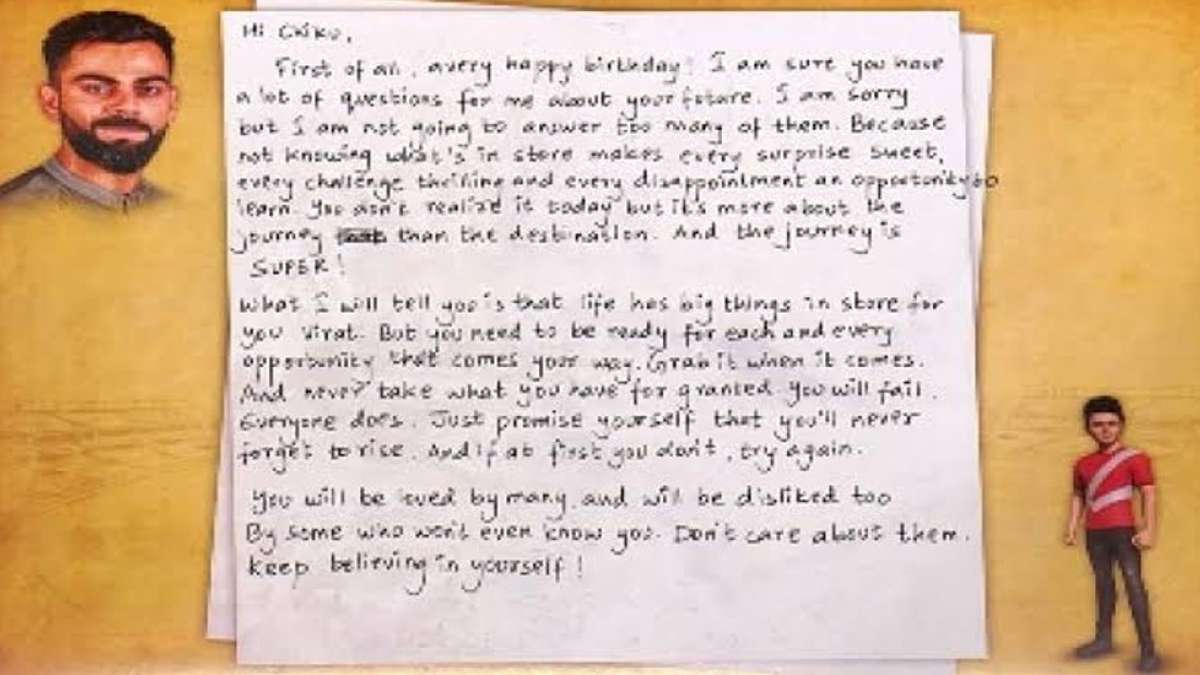 Hi Chiku,
First of all, a very happy birthday! I am sure you have
a lot of questions for me about your future. I am sorry
but I am not going to answer too many of them. Because
not knowing what's in store makes every surprise sweet,
every challenge thrilling and every disappointment an opportunity to
learn. You don't realize it today but it's more about the
journey than the destination. And the journey is
SUPER!
What I will tell you is that life has big things in store for
you Virat. But you need to be ready for each and every
opportunity that comes your way. Grab it when it comes.
And never take what you have for granted. You will fail.
Everyone does. Just promise yourself that you'll never
forget to rise. And if at first you don't, try again.
You will be loved by many, and will be disliked too
By some who won't even know you. Don't care about them.
Keep believing in yourself!